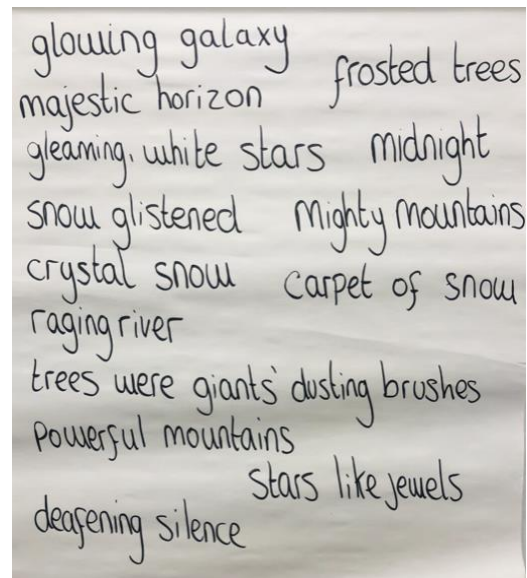 glowing galaxy
frosted trees
majestic horizon
gleaming, white stars
midnight
snow glistened
Mighty Mountains
crystal snow
carpet of snow
raging river
trees were giants' dusting brushes
powerful mountains
stars like jewels
deafening silence